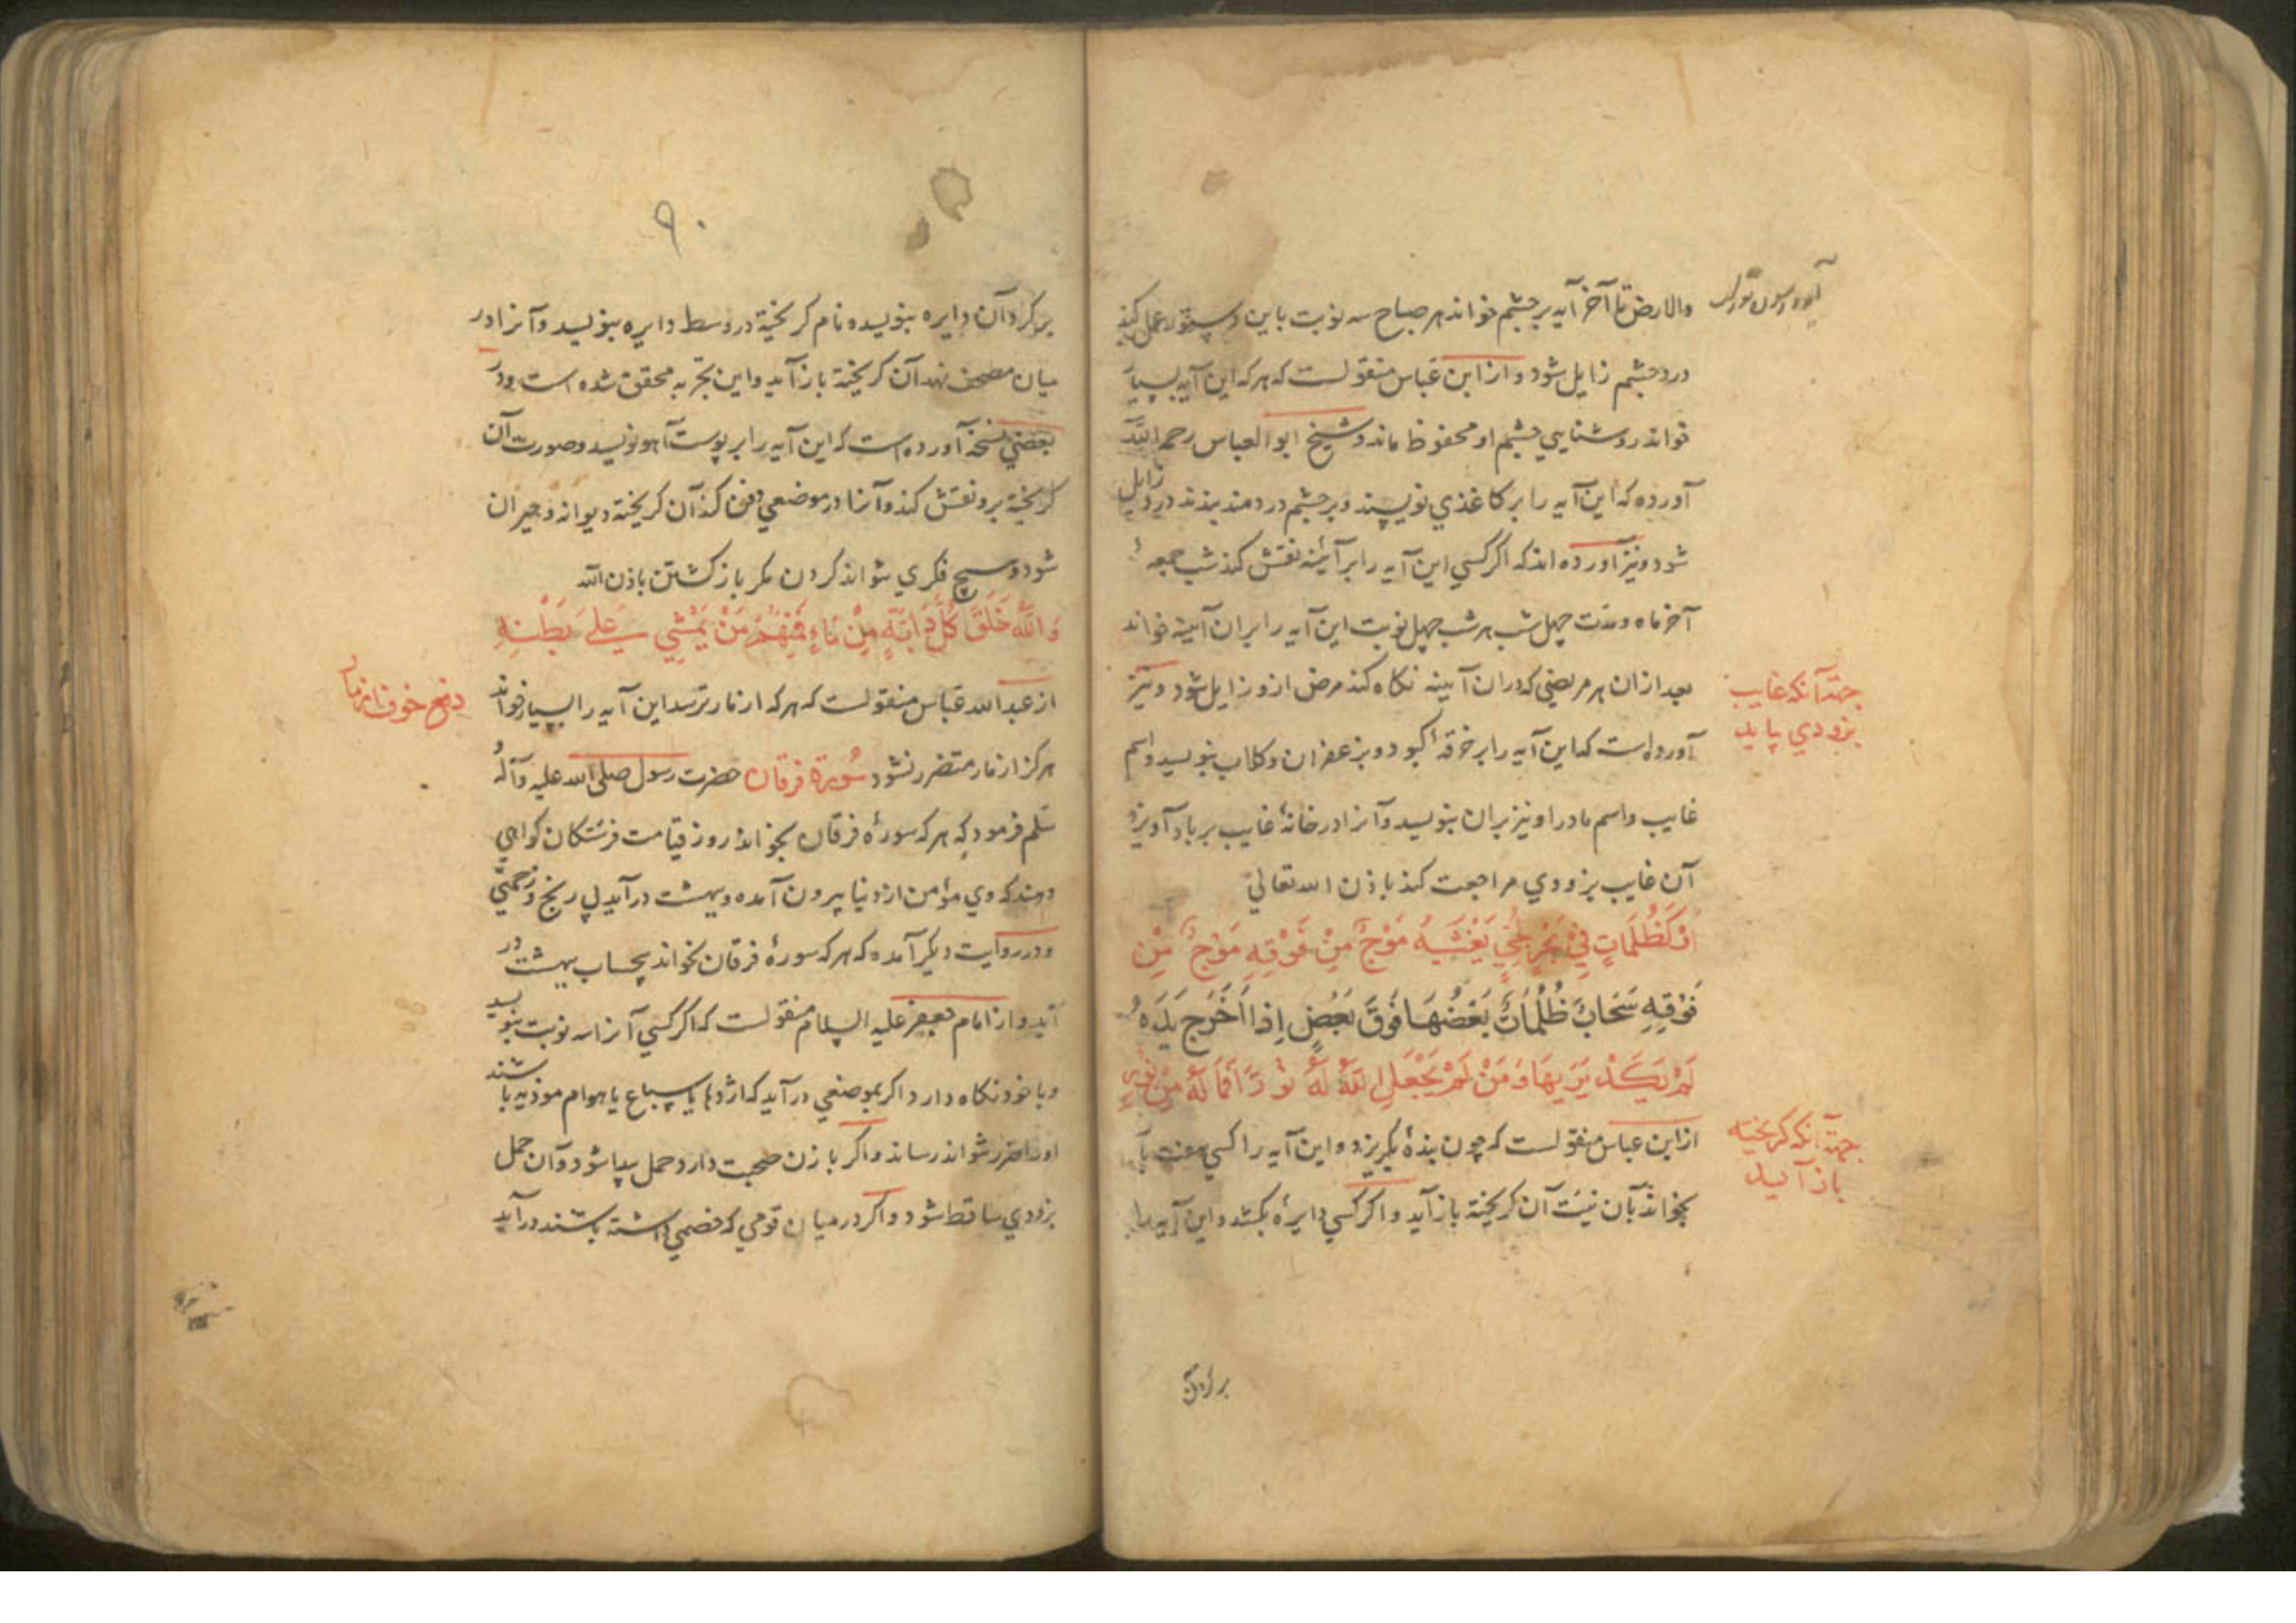 والارض تا آخر آیه بر چشم خواند هر صباح سه نوبت باین دستور عمل کند
درد چشم زایل شود و از ابن عباس منقولست که هر که این آیه بسیار
خواند روشنایی چشم او محفوظ ماند و شیخ ابو العباس رحمه الله
آورده که این آیه را بر کاغذی نویسند و بر چشم دردمند بندند درد زایل
شود و نیز آورده اند که اگر کسی این آیه را بر آئینه نقش کند شب جمعه
آخر ماه و مدت چهل شب هر شب چهل نوبت این آیه را بران آیینه خواند
بعد ازان هر مریضی که دران آیینه نکاه کند مرض ازو زایل شود و نیز
آورده است که این آیه را بر خرقه کبود و بزعفران و کلاب بنویسد و اسم
غایب و اسم مادر او نیز بران بنویسد و آنرا در خانهٔ غایب بر باد آویزد
آن غایب بزودی مراجعت کند باذن الله تعالی
جهة آنکه غایب
بزودی بیاید
اَوْ كَظُلُمَاتٍ فِي بَحْرٍ لُجِّيٍّ يَغْشَيهُ مَوْجٌ مِنْ فَوْقِهِ مَوْجٌ مِنْ
فَوْقِهِ سَحَابٌ ظُلُمَاتٌ بَعْضُهَا فَوْقَ بَعْضٍ اِذَا اَخْرَجَ يَدَهُ
لَمْ يَكَدْ يَرَيهَا وَمَنْ لَمْ يَجْعَلِ اللَّهُ لَهُ نُورًا فَمَا لَهُ مِنْ نُورٍ
از ابن عباس منقولست که چون بندهٔ بکریزد و این آیه را کسی هفت بار
بخواند بآن نیت آن کریخته باز آید و اکر کسی دایرهٔ بکشد و این آیه را
جهة آنکه کریخته
باز آید
بر کرد آن
۹۰
بر کرد آن دایره بنویسد و نام کریخته در وسط دایره بنویسد و آنرا در
میان مصحف نهد آن کریخته باز آید و این تجربه محقق شده است و در
بعضی نسخه آورده است که این آیه را بر پوست آهو نویسد و صورت آن
کریخته برو نقش کند و آنرا در موضعی دفن کند آن کریخته دیوانه و حیران
شود و هیچ فکری نتواند کردن مکر باز کشتن باذن الله
وَاللَّهُ خَلَقَ كُلَّ دَابَّةٍ مِنْ مَاءٍ فَمِنْهُمْ مَنْ يَمْشِي عَلَى بَطْنِهِ
از عبد الله عباس منقولست که هر که از مار ترسد این آیه را بسیار خواند
دفع خوف از مار
هرکز از مار متضرر نشود سُورة فرقان حضرت رسول صلی الله علیه وآله
سلم فرمود که هر که سورهٔ فرقان بخواند روز قیامت فرشتکان کواهی
دهند که وی مؤمن از دنیا بیرون آمده و ببهشت در آید بی رنج و زحمتی
و در روایت دیکر آمده که هر که سورهٔ فرقان بخواند بیحساب ببهشت در
آید و از امام جعفر علیه السلام منقولست که اکر کسی آنرا سه نوبت بنویسد
و با خود نکاه دارد اکر بموضعی در آید که اژدها یا سباع یا هوام موذیه باشند
او را ضرر نتواند رساند و اکر با زن صحبت دارد حمل پیدا شود و آن حمل
بزودی ساقط شود و اکر در میان قومی که خصمی داشته باشند در آید